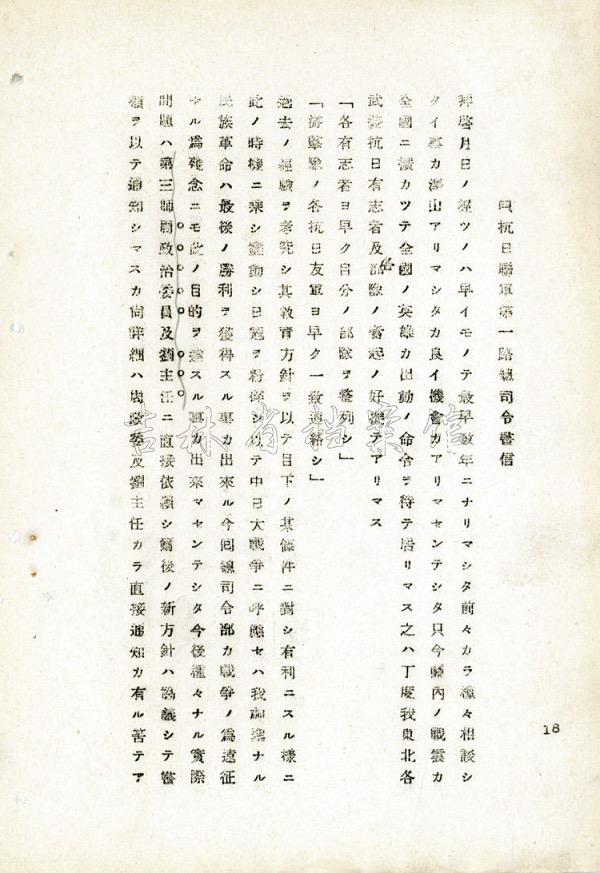 四抗日聯軍第一路總司令書信
拜啓月日ノ經ツノハ早イモノテ最早數年ニナリマシタ前々カラ種々相談シ
タイ事カ澤山アリマシタカ良イ機會カアリマセンテシタ只今關内ノ戰雲カ
全國ニ擴カツテ全國ノ英雄カ出動ノ命令ヲ待テ居リマス之ハ丁度我東北各
武裝抗日有志者及各部隊ノ奮起ノ好機テアリマス
「各有志者ヨ早ク自分ノ部隊ヲ整列シ」
「游擊隊ノ各抗日友軍ヨ早ク一致連絡シ」
過去ノ經驗ヲ考究シ其敎育方針ヲ以テ目下ノ某條件ニ對シ有利ニスル樣ニ
此ノ時機ニ乘シ蠢動シ日寇ヲ粉碎シ以テ中日大戰爭ニ呼應セハ我神聖ナル
民族革命ハ最後ノ勝利ヲ獲得スル事カ出來ル今回總司令部カ戰爭ノ爲遠征
セル爲殘念ニモ此ノ目的ヲ達スル事カ出來マセンテシタ今後種々ナル實際
問題ハ第三師周政治委員及劉主任ニ直接依賴シ爾後ノ新方針ハ協議シテ書
類ヲ以テ通知シマスカ尚詳細ハ周政委及劉主任カラ直接通知カ有ル筈テア
18
吉林省档案馆